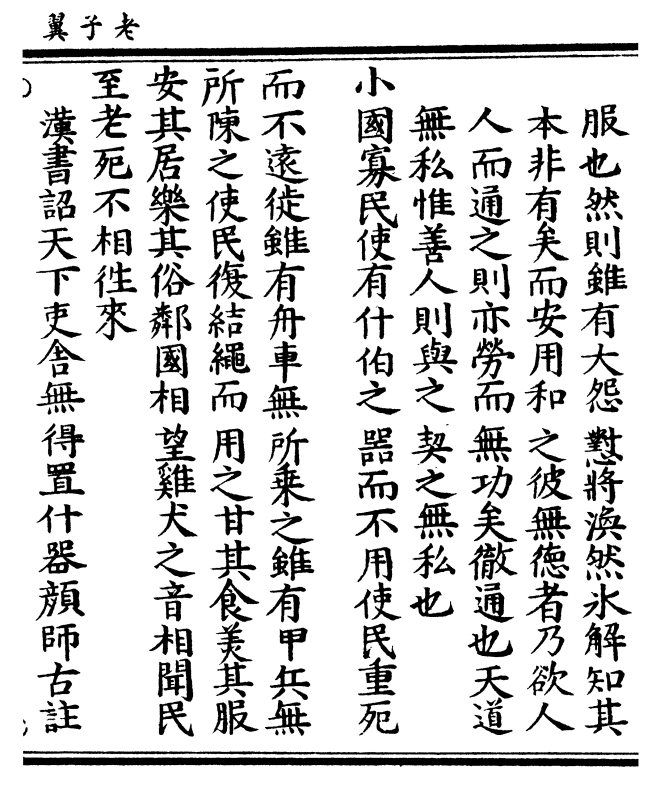 老子翼
服也然則雖有大怨懟將渙然冰解知其
本非有矣而安用和之彼無德者乃欲人
人而通之則亦勞而無功矣徹通也天道
無私惟善人則與之契之無私也
小國寡民使有什伯之器而不用使民重死
而不遠徙雖有舟車無所乘之雖有甲兵無
所陳之使民復結繩而用之甘其食美其服
安其居樂其俗鄰國相望雞犬之音相聞民
至老死不相往來
漢書詔天下吏舍無得置什器顏師古註